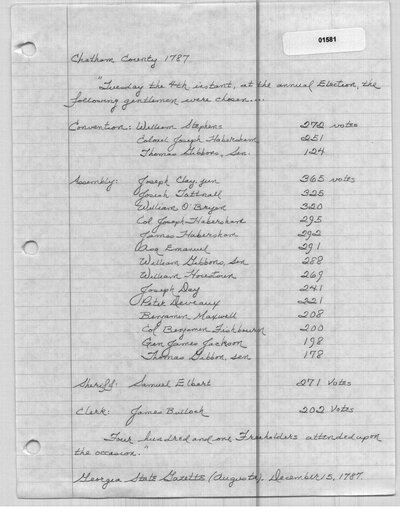 01581
Chatham County 1787
"Tuesday the 4th instant, at the annual Election, the
following gentlemen were chosen...
Convention: William Stephens 272 votes
Colonel Joseph Habersham 251
Thomas Gibbons, Sen. 124
Assembly: Joseph Clay, jun 365 votes
Josiah Tattnall 325
William O'Bryen 320
Col Joseph Habersham 295
James Habersham 292
Asa Emanuel 291
William Gibbons, Sen 288
William Houstoun 269
Joseph Day 241
Peter Deveaux 221
Benjamin Maxwell 208
Col Benjamin Fishbourn 200
Gen James Jackson 198
Thomas Gibbon, sen 178
Sheriff: Samuel Elbert 271 Votes
Clerk: James Bulloch 202 Votes
Four hundred and one Freeholders attended upon
the occasion."
Georgia State Gazette (Augusta), December 15, 1787.